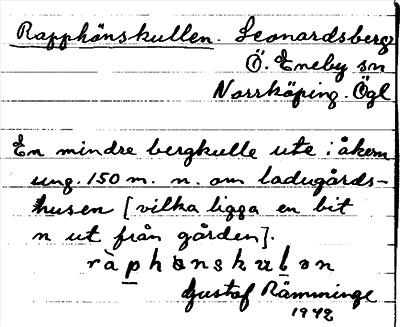 Rapphönskullen. Leonardsberg
Ö. Eneby sn
Norrköping. Ögl
En mindre bergkulle ute i åkern
ung. 150 m. n. om ladugårds-
husen [vilka ligga en bit
n ut från gården].
ràphönskulən
Gustaf Rämminge
1942